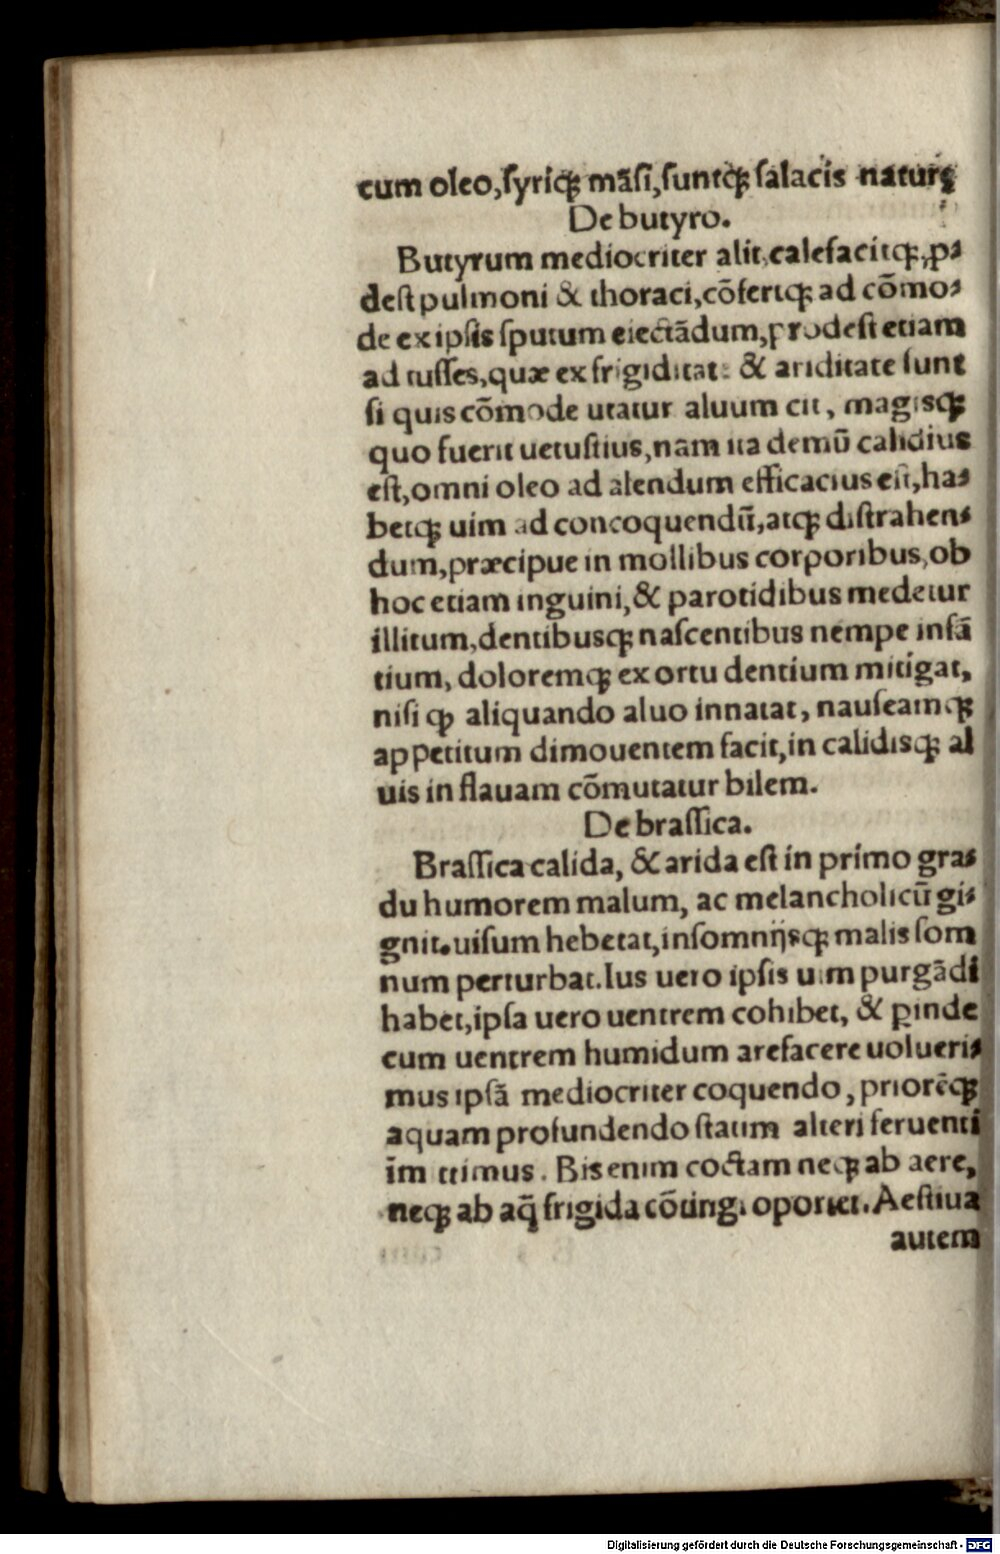 cum oleo, ſyriꝗ; mãſi, ſuntꝗ; ſalacis naturę
De butyro.
Butyrum mediocriter alit, calefacitꝗ;, ꝓ⸗
deſt pulmoni & thoraci, cõfertꝗ; ad cõmo⸗
de ex ipſis ſputum eiectãdum, prodeſt etiam
ad tuſſes, quæ ex frigiditate & ariditate ſunt
ſi quis cõmode utatur aluum cit, magisꝗ;
quo fuerit uetuſtius, nam ita demũ calidius
eſt, omni oleo ad alendum efficacius eſt, ha⸗
betꝗ; uim ad concoquendũ, atꝗ; diſtrahen⸗
dum, præcipue in mollibus corporibus, ob
hoc etiam inguini, & parotidibus medetur
illitum, dentibusꝗ; naſcentibus nempe inſã
tium, doloremꝗ; ex ortu dentium mitigat,
niſi ꝙ aliquando aluo innatat, nauſeamꝗ;
appetitum dimouentem facit, in calidisꝗ; al
uis in flauam cõmutatur bilem.
De braſſica.
Braſſica calida, & arida eſt in primo gra⸗
du humorem malum, ac melancholicũ gi⸗
gnit. uiſum hebetat, inſomnijsꝗ; malis ſom
num perturbat. Ius uero ipſis uim purgãdi
habet, ipſa uero uentrem cohibet, & ꝓinde
cum uentrem humidum arefacere uolueri⸗
mus ipſã mediocriter coquendo, priorẽꝗ;
aquam profundendo ſtatim alteri feruenti
im ttimus. Bis enim coctam neꝗ; ab aere,
neꝗ; ab aq̃ frigida cõtingi oportet. Aeſtiua
autem
Digitalisierung gefördert durch die Deutsche Forschungsgemeinschaft - DFG